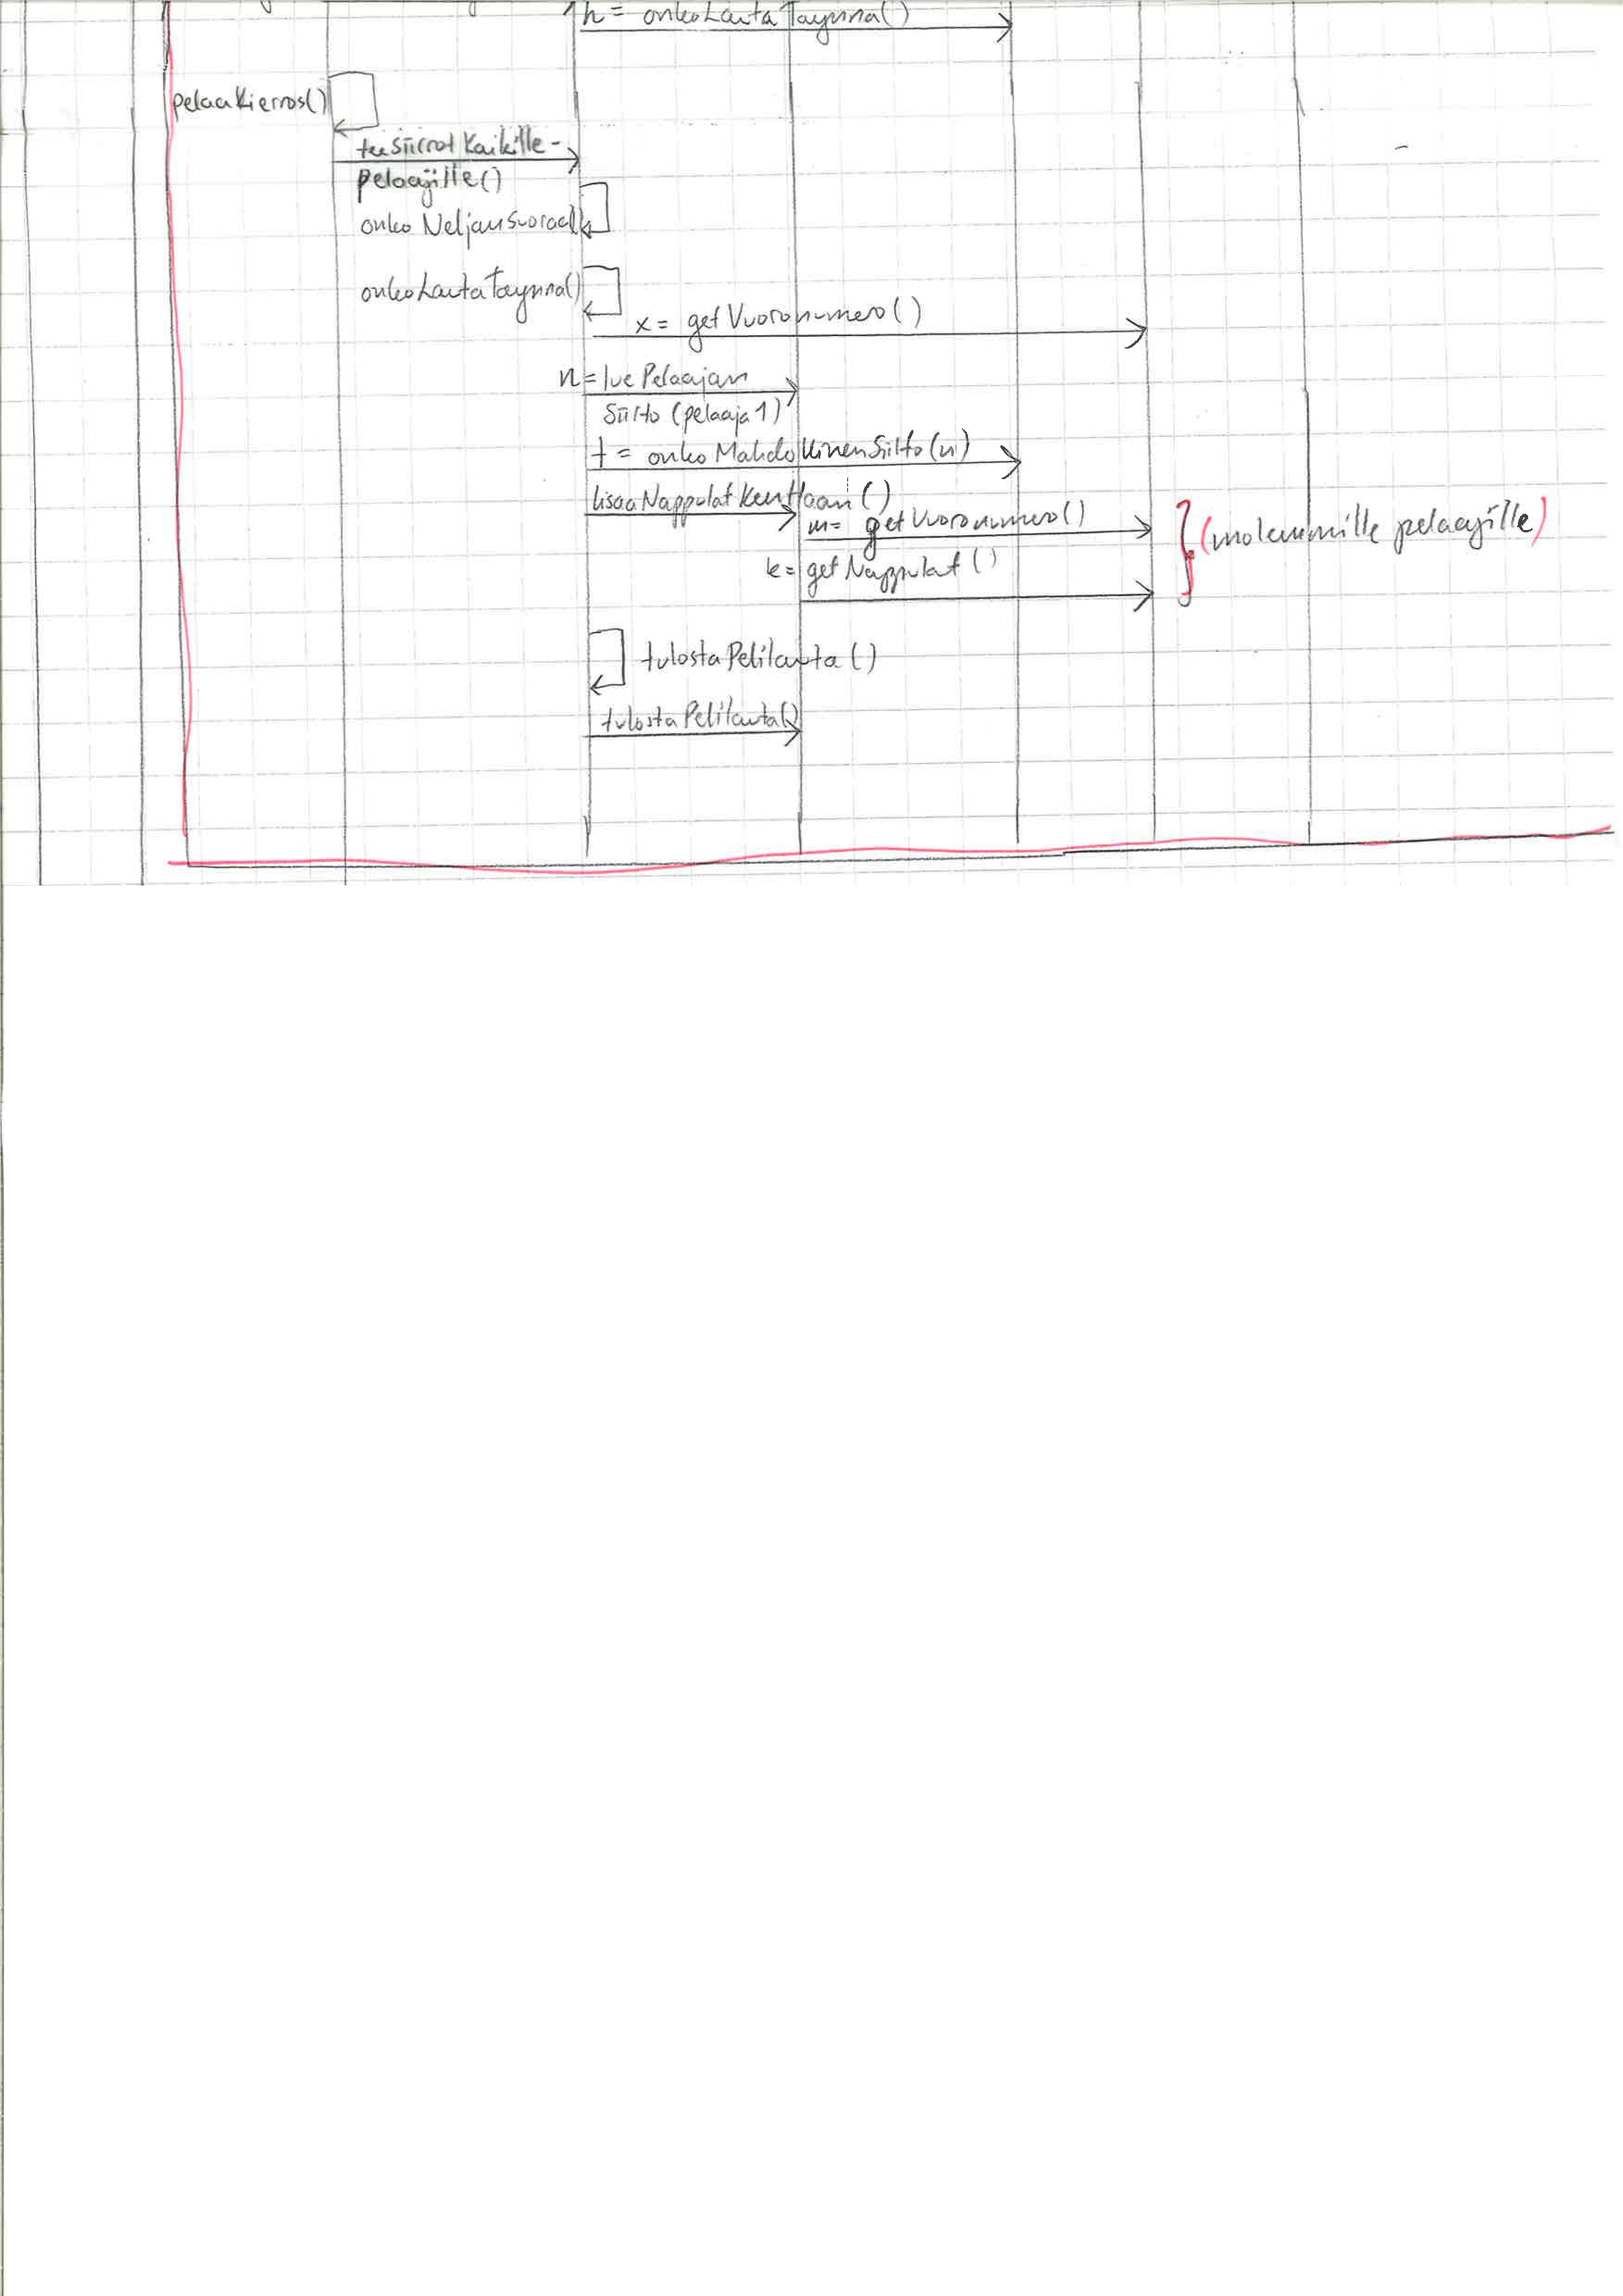 h = onkoLautaTaynna()
pelaaKierros()
teeSiirrot Kaikille-
pelaajille()
onko Neljansuoraa()
onkoLautaTaynna()
x = getVuoronumero()
n = lue Pelaajan
Siirto (pelaaja 1)
t = onko MahdollinenSiirto(n)
lisaaNappulatKenttaan()
m = getVuoronumero()
(molemmille pelaajille)
k = getNappulat()
tulostaPelilauta()
tulostaPelilauta()